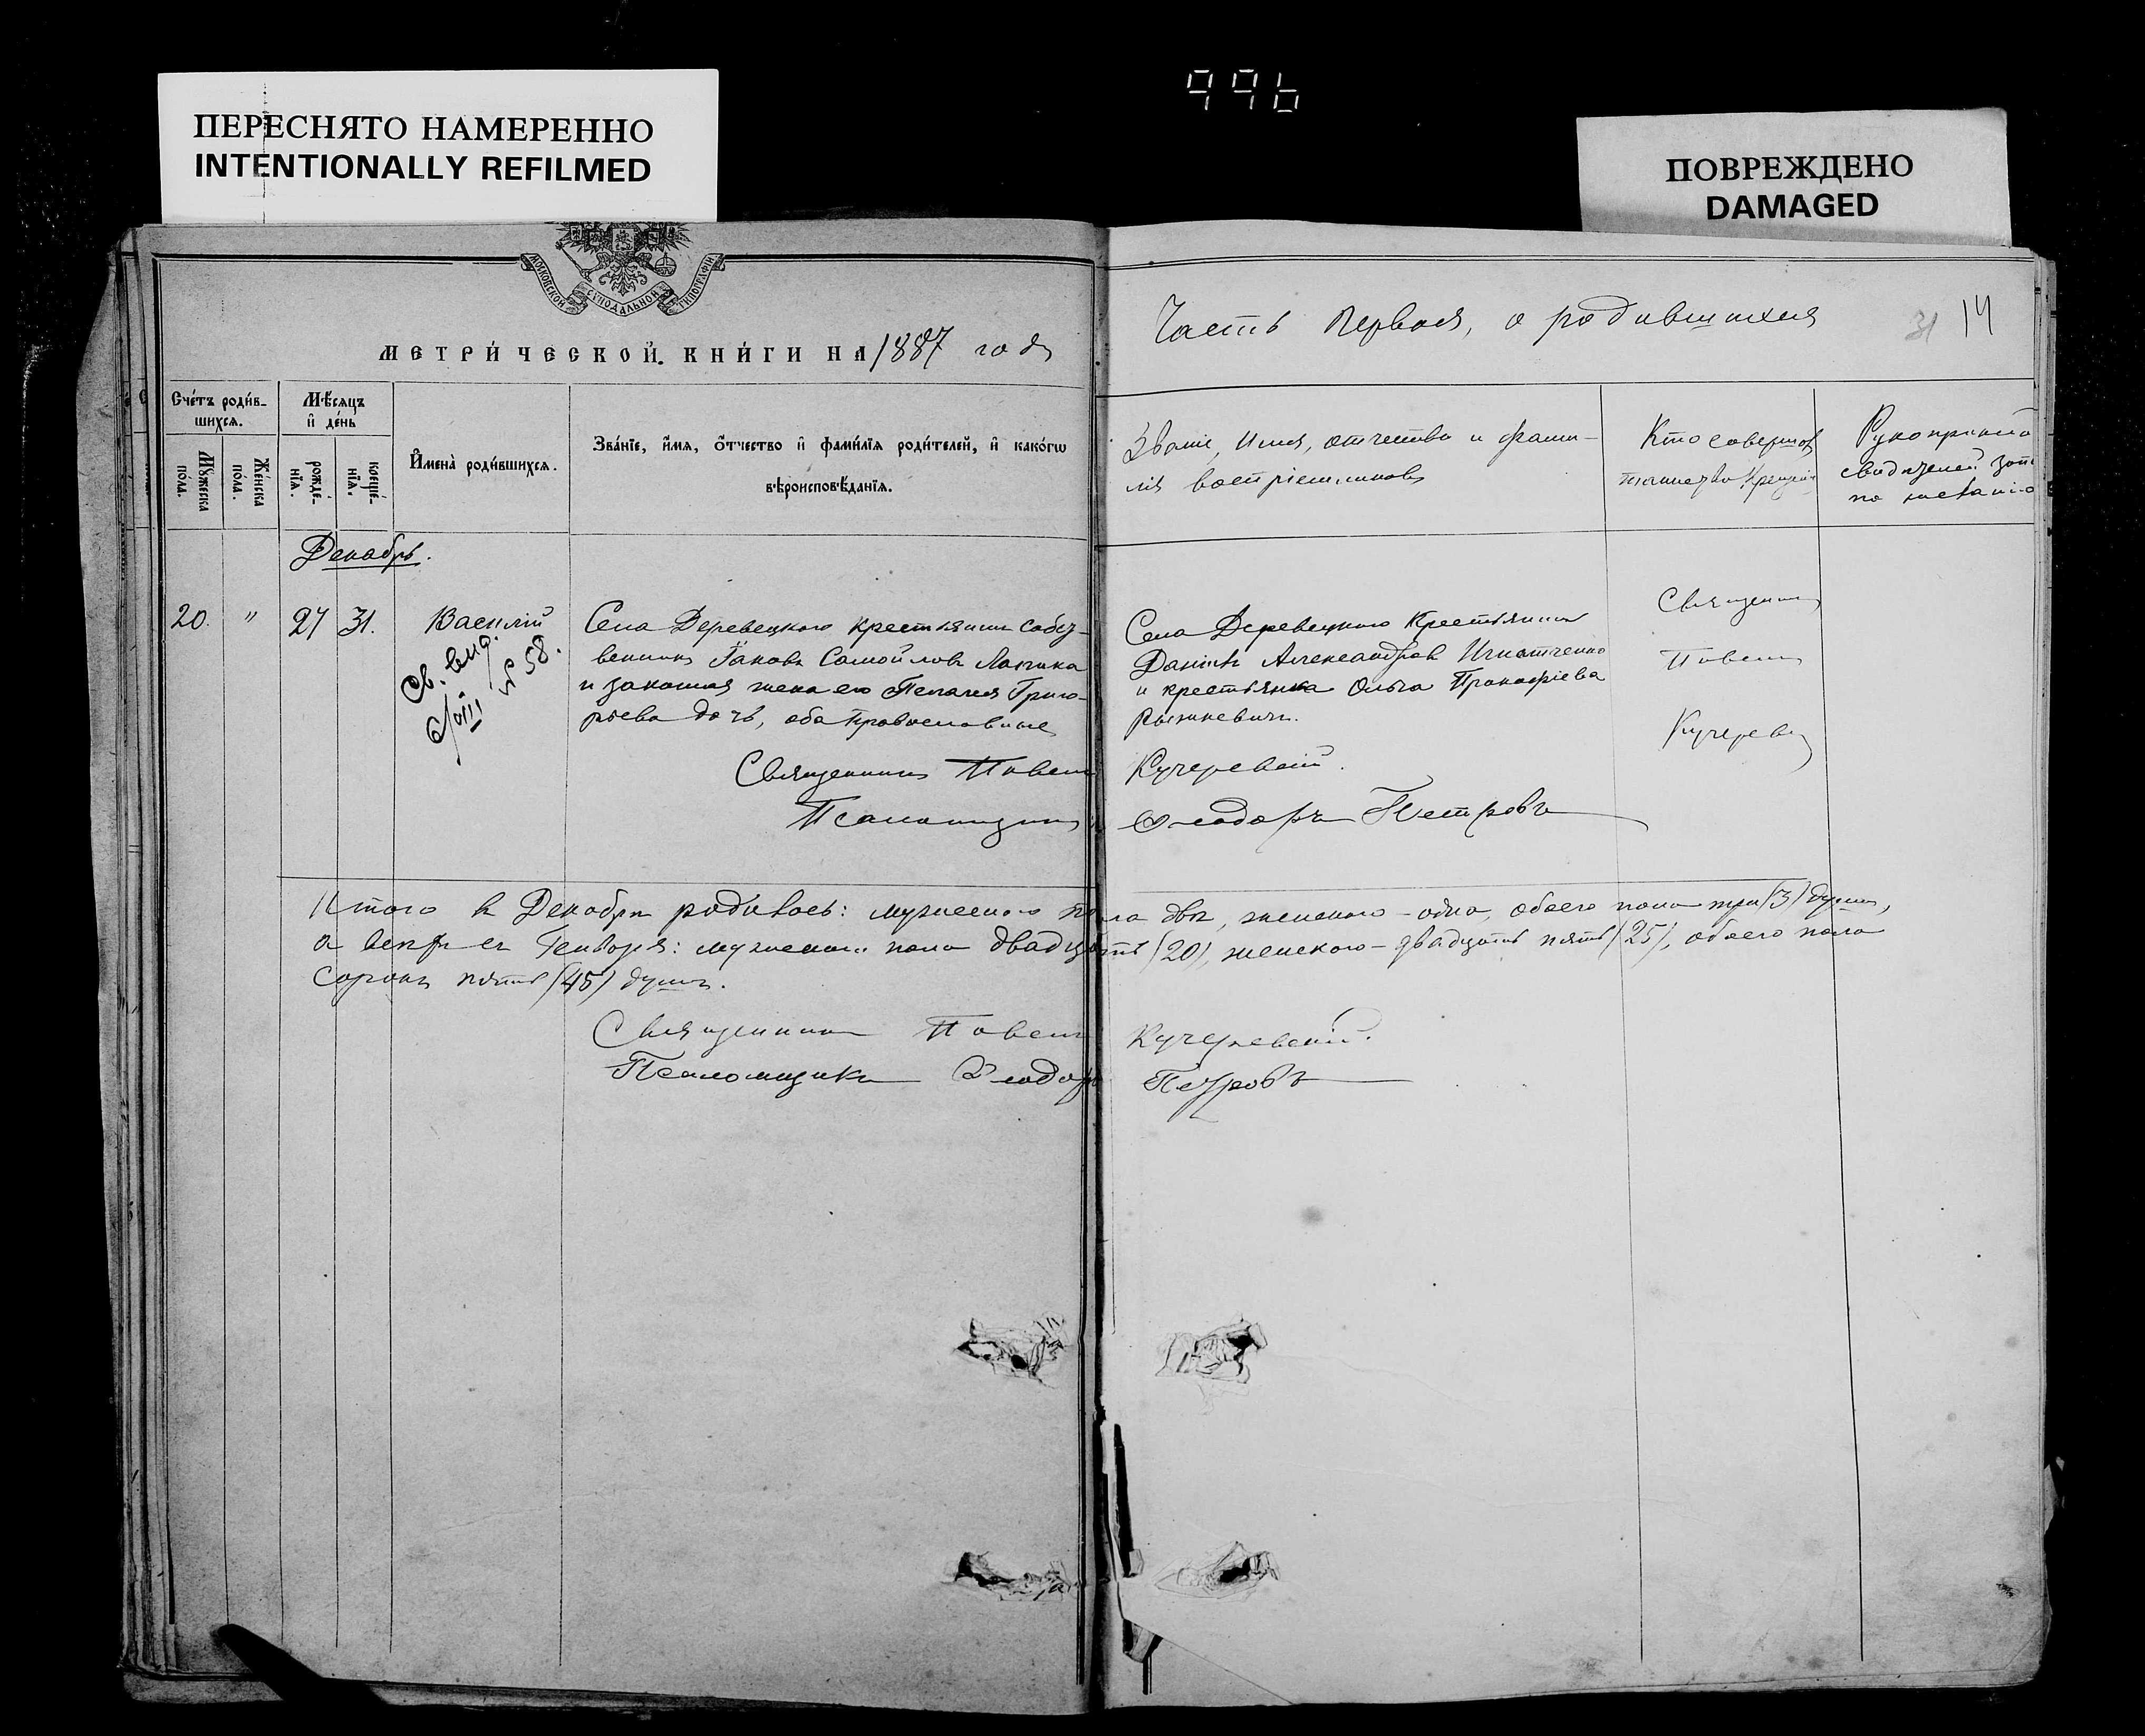 996
ПЕРЕСНЯТО НАМЕРЕННО
INTENTIONALLY REFILMED
ПОВРЕЖДЕНО
DAMAGED
МОСКОВСКОЙ СѴНОДАЛЬНОЙ ТИПОГРАФІИ
МЕТРИ́ЧЕСКОЙ КНИ́ГИ НА 1887 годъ
Часть первая, о родившихся
31 14
Сче́тъ роди́в-
шихся.
Мѣ́сяцъ
и҆ де́нь
Мꙋ́жеска
по́ла.
Же́нска
по́ла.
рожде́-
нїѧ.
креще́-
нїѧ.
И҆мена̀ роди́вшихсѧ.
Зва́нїе, и҆́мѧ, ѻ҆́тчество и҆ фами́лїѧ роди́телей, и҆ како́гѡ
вѣроисповѣ́данїѧ.
Званіе, имя, отчество и фами-
лія воспріемниковъ
Кто совершал
таинство крещенія
Рукоприкла
свидѣтелей запи
по желанію
Декабрь.
20. " 27 31. Василій
Св. выд.
6/VIII № 58.
Села Деревецкого крестьянинъ собст-
венникъ Іаковъ Самойловъ
и законная жена его Пелагія Григо-
рьева дочь, оба православные
Села Деревецкого крестьянинъ
Даніилъ Александровъ Игнатченко
и крестьянка Ольга Прокофіева
Священникъ
Павелъ
Кучеревск
Священникъ Павелъ Кучеревскій.
Псаломщикъ Ѳеодоръ Петровъ
Итого въ Декабрѣ родилось: мужескаго пола два, женскаго - одна, обоего пола три (3) души,
а всего съ Генваря: мужескаго пола двадцать (20), женского - двадцать пять (25), обоего пола
сорокъ пять (45) душъ.
Священникъ Павелъ Кучеревскій.
Псаломщикъ Ѳеодоръ Петровъ